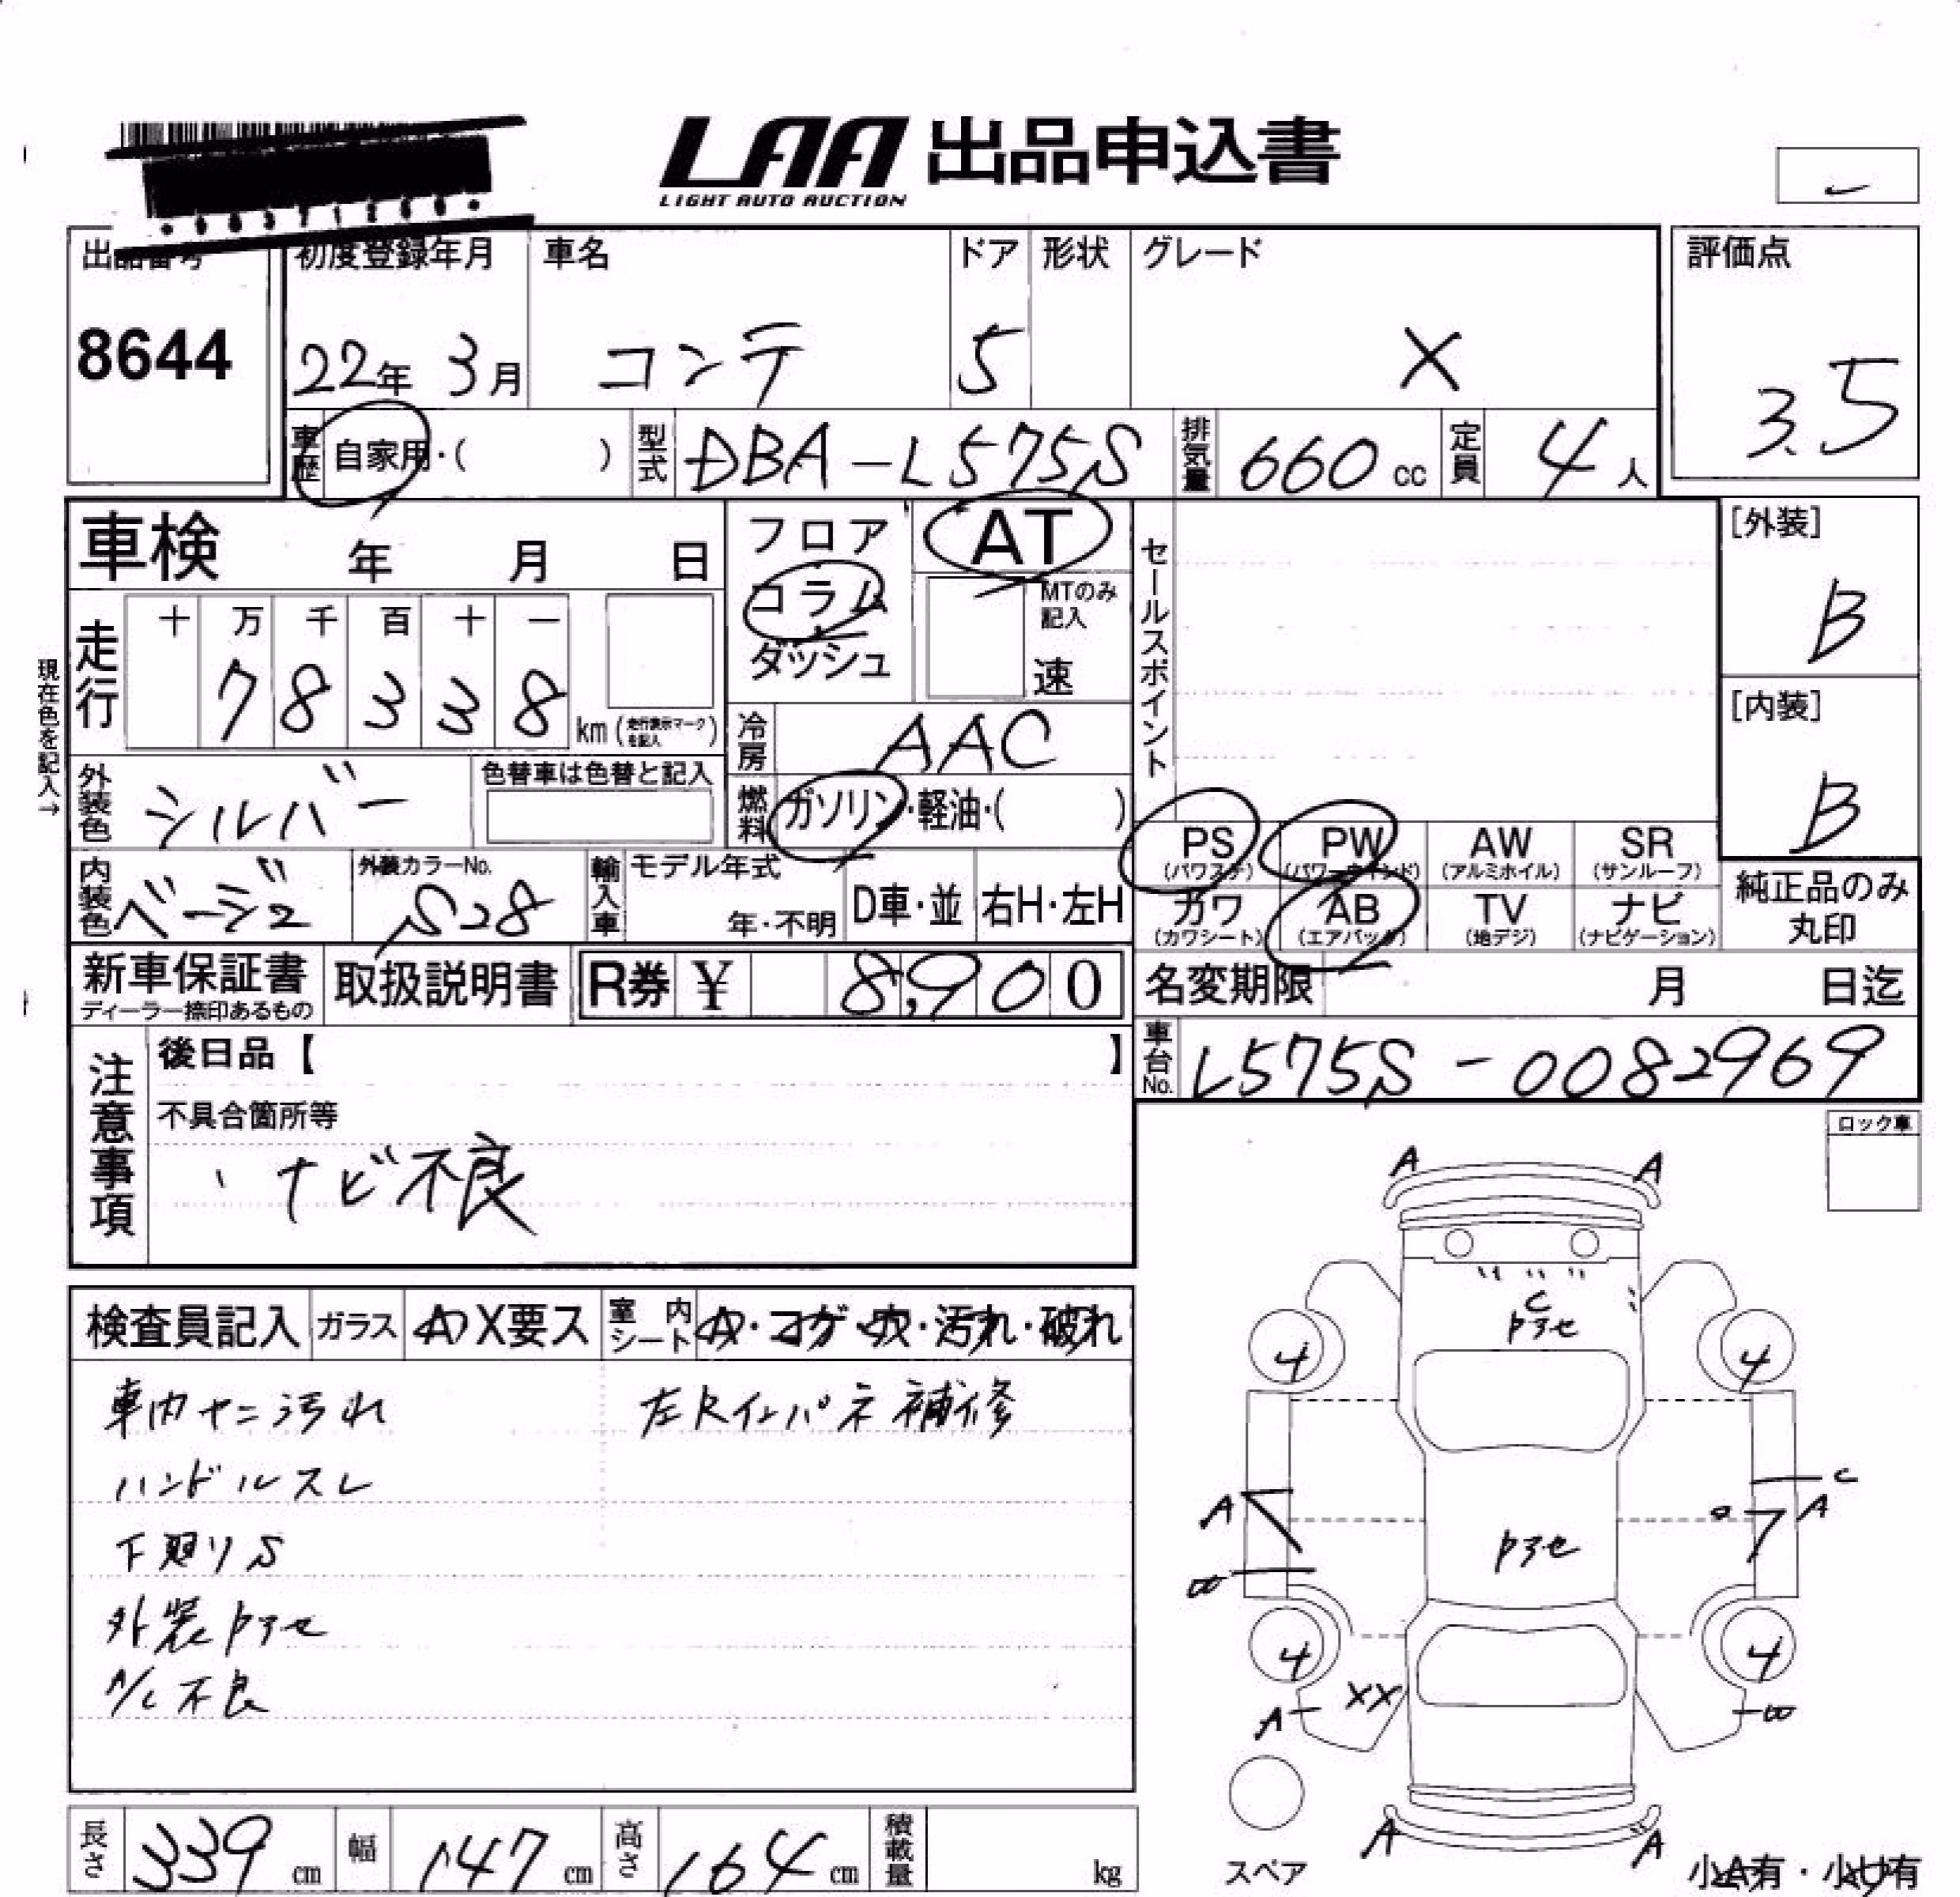 LAA 出品申込書
LIGHT AUTO AUCTION
出品番号 初度登録年月 車名 ドア 形状 グレード 評価点
8644 22年 3月 コンテ 5 X 3.5
車歴 自家用・( ) 型式 DBA-L575S 排気量 660 cc 定員 4人
車検 年 月 日 フロア AT セールスポイント [外装]
コラム MTのみ記入 B
ダッシュ 速
現在色を記入→
走行 十 万 千 百 十 一
7 8 3 3 8 km (走行表示マークを記入) [内装]
冷房 AAC B
外装色 シルバー 色替車は色替と記入 燃料 ガソリン・軽油・( )
PS PW AW SR
(パワステ) (パワーウインド) (アルミホイル) (サンルーフ)
内装色 ベージュ 外装カラーNo. S28 輸入車 モデル年式 年・不明 D車・並 右H・左H
カワ AB TV ナビ 純正品のみ丸印
(カワシート) (エアバック) (地デジ) (ナビゲーション)
新車保証書 取扱説明書 R券 ¥ 8,900 名変期限 月 日迄
ディーラー捺印あるもの
注意事項 後日品【 】 車台No. L575S-0082969
不具合箇所等 ロック車
・ナビ不良
A A
C
検査員記入 ガラス A X要ス 室内シート A・コゲ・穴・汚れ・破れ
4 4
車内ヤニ汚れ 左Rインパネ補修
ハンドルスレ
C
A A
下廻りS
外装アセ
4 4
A/C不良
A XX
A A
長さ 339 cm 幅 147 cm 高さ 164 cm 積載量 kg スペア 小A有・小U有